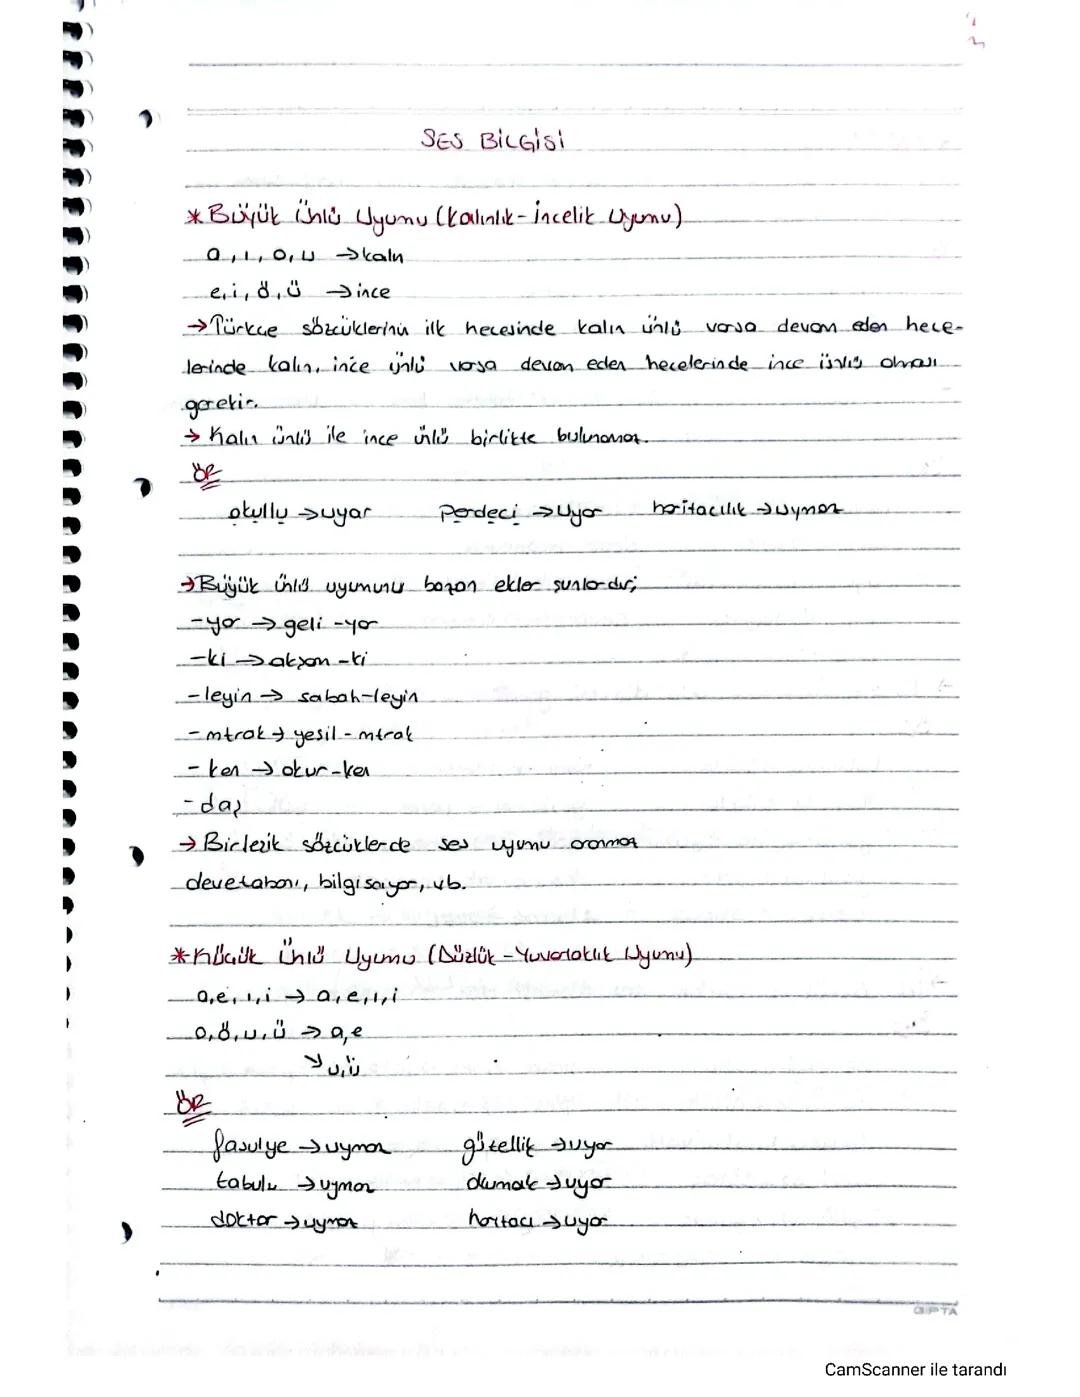 SES BİLGİSİ
*Büyük Ünlü Uyumu (Kalınlık-İncelik Uyumu)
a, ı, o, u →kalın
e, i, ö, ü →ince
→Türkçe sözcüklerinin ilk hecesinde kalın ünlü varsa devam eden hece-
lerinde kalın, ince ünlü varsa devam eden hecelerinde ince ünlü olması
gerekir.
→ Kalın ünlü ile ince ünlü birlikte bulunamaz.
ÖR
okullu →uyar perdeci →uyar haritacılık →uymaz
→Büyük ünlü uyumunu bozan ekler şunlardır;
-yor → geli -yor
-ki → akşam -ki
-leyin → sabah-leyin
-mtrak → yeşil - mtrak
- ken → okur-ken
-daş
→ Birleşik sözcüklerde ses uyumu aranmaz
devetabanı, bilgisayar, vb.
*Küçük Ünlü Uyumu (Düzlük-Yuvarlaklık Uyumu)
a,e, ı, i → a, e, ı, i
o, ö, u, ü → a,e
↘ u, ü
ÖR
fasulye →uymaz güzellik →uyar
tabulu →uymaz okumak →uyar
doktor →uymaz haritacı →uyar
GIPTA
CamScanner ile tarandı